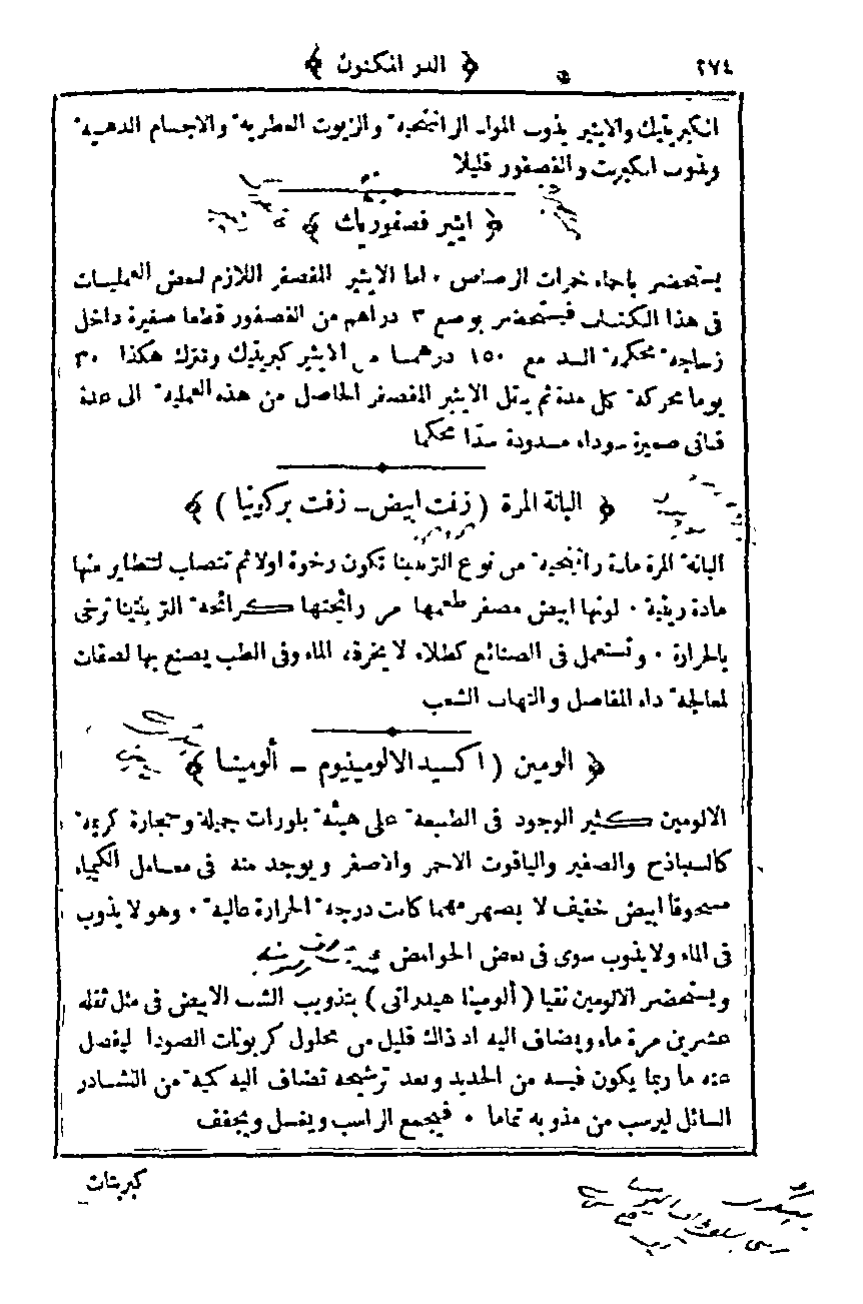 ﴿ الدر المكنون ﴾ ٢٧٤
الكبريتيك والايثير يذوب المواد الراتنجيه والزيوت العطريه والاجسام الدهنيه
ويذوب الكبريت والفصفور قليلا
﴿ ايثير فصفوريك ﴾
يستحضر باحماء خمرات الرصاص ٠ اما الايثير المفصفر اللازم لبعض العمليات
فى هذا الكتاب فيستحضر بوضع ٣ دراهم من الفصفور قطعا صغيرة داخل
زجاجه محكمه السد مع ١٥٠ درهما من الايثير كبريتيك وتترك هكذا ٣٠
يوما محركه كل مدة ثم ينقل الايثير المفصفر الحاصل من هذه العمليه الى عدة
قنانى صغيرة سوداء مسدودة سدّا محكما
﴿ البانة المرة ( زفت ابيض ـ زفت بركونيا ) ﴾
البانه المرة مادة راتنجيه من نوع التربنتينا تكون رخوة اولا ثم تتصلب لتطاير منها
مادة زيتية ٠ لونها ابيض مصفر طعمها مر رائحتها كرائحه التربنتينا ترخى
بالحرارة ٠ وتستعمل فى الصنائع كطلاء لا يخرقه الماء وفى الطب يصنع بها لصقات
لمعالجه داء المفاصل والتهاب الشعب
﴿ الومين ( اكسيد الالومينيوم ـ ألومينا ) ﴾
الالومين كثير الوجود فى الطبيعه على هيئه بلورات جميلة وحجارة كريمه
كالسباذج والصفير والياقوت الاحمر والاصفر ويوجد منه فى معامل الكيمياء
مسحوقا ابيض خفيف لا يصهر مهما كانت درجه الحرارة عاليه ٠ وهو لا يذوب
فى الماء ولا يذوب سوى فى بعض الحوامض
ويستحضر الالومين نقيا ( ألومينا هيدراتى ) بتذويب الشب الابيض فى مثل ثقله
عشرين مرة ماء ويضاف اليه اذ ذاك قليل من محلول كربونات الصودا ليفصل
عنه ما ربما يكون فيه من الحديد وبعد ترشيحه تضاف اليه كميه من النشادر
السائل ليرسب من مذوبه تماما ٠ فيجمع الراسب ويغسل ويجفف
كبريتات